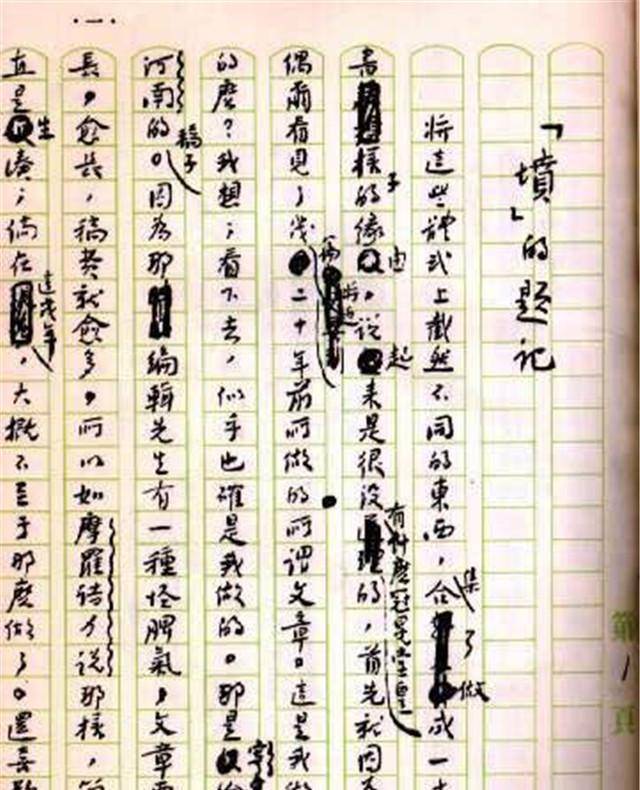 ·一·
第1頁
「墳」的題記
將這些體式上截然不同的東西,合集了做成一
書樣子的緣由,說起來是很沒有什麼冠冕堂皇的,首先就因
偶爾看見了幾篇將近二十年前所做的所謂文章。這是我做
的麼?我想;看下去,似乎也確是我做的。那是寄
河南的稿子。因為那編輯先生有一種怪脾氣,文章
長,愈長,稿費就愈多,所以如摩羅詩力說那樣,
直是生湊;倘在這幾年,大概不至于那麼做了。還喜